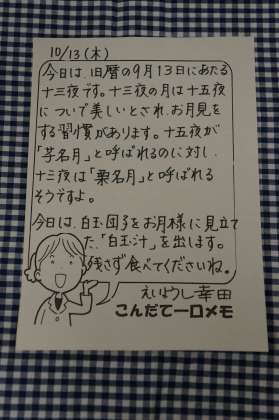 10/13(木)
今日は、旧暦の9月13日にあたる
十三夜です。十三夜の月は十五夜
について美しいとされ、お月見を
する習慣があります。十五夜が
「芋名月」と呼ばれるのに対し、
十三夜は「栗名月」と呼ばれる
そうですよ。
今日は、白玉団子をお月様に見立て
た、「白玉汁」を出します。
残さず食べてくださいね。
えいようし 幸田
こんだて一口メモ